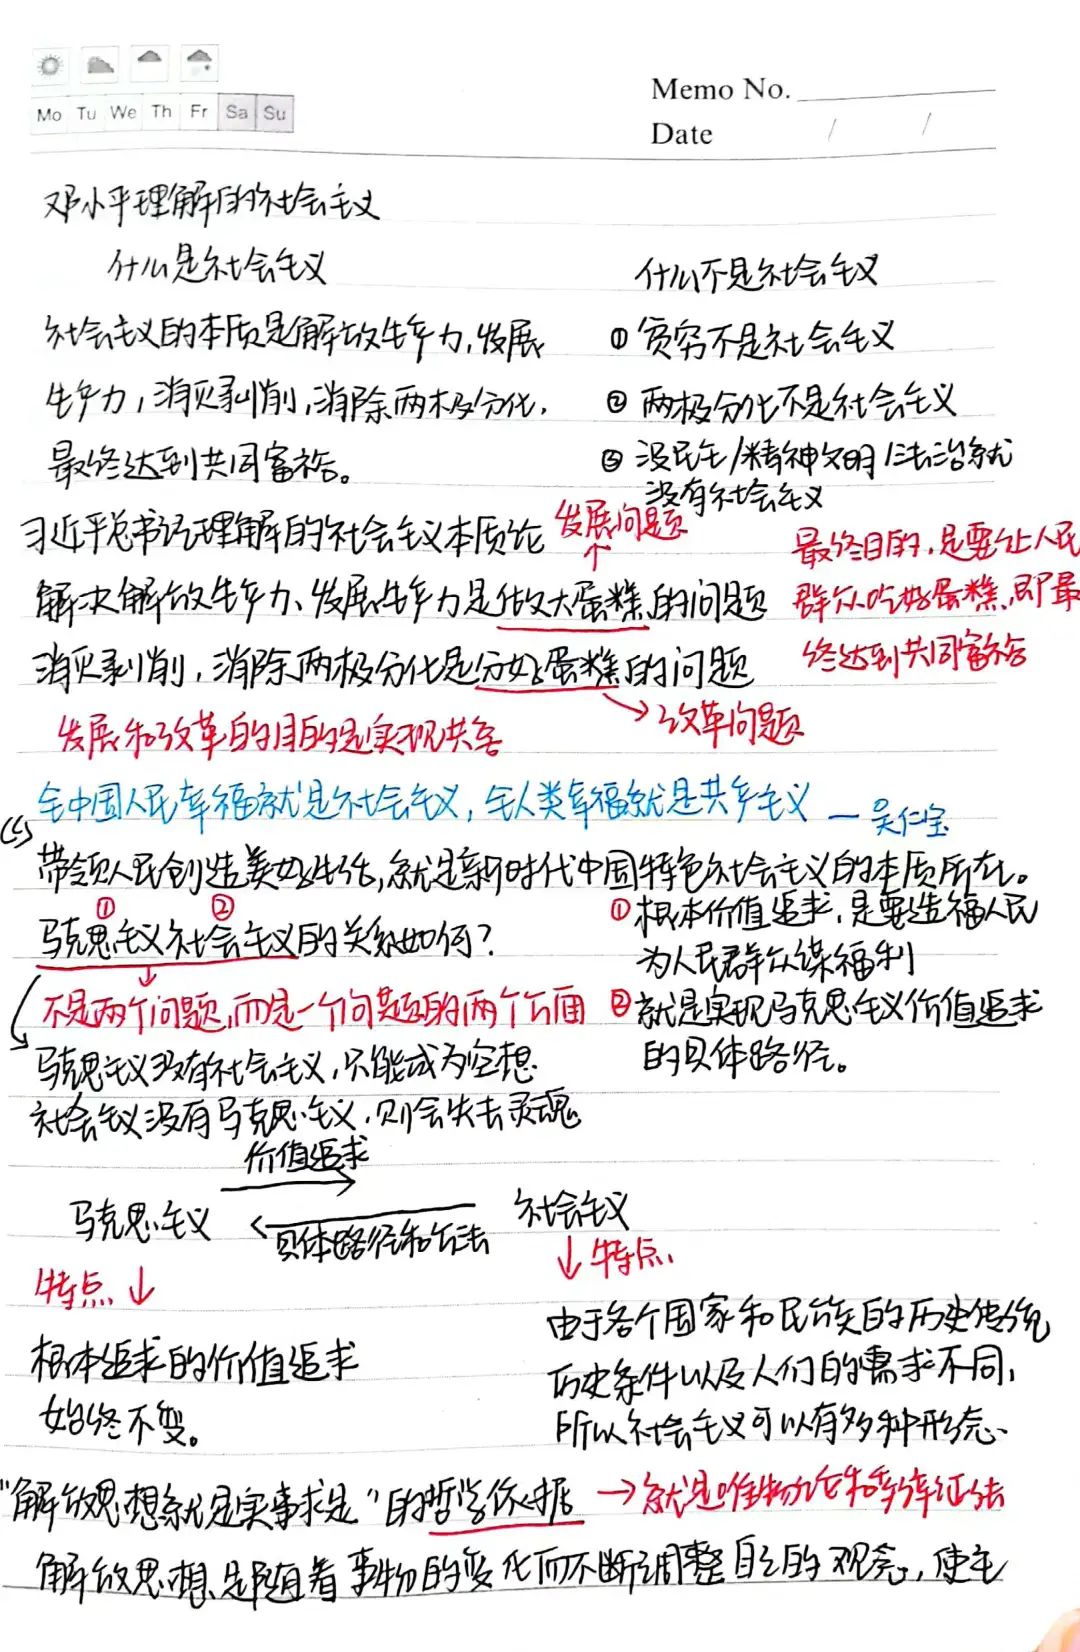 Memo No.
Mo Tu We Th Fr Sa Su
Date / /
邓小平理解的社会主义
什么是社会主义
什么不是社会主义
社会主义的本质是解放生产力,发展
① 贫穷不是社会主义
生产力,消灭剥削,消除两极分化,
② 两极分化不是社会主义
最终达到共同富裕。
③ 没民主/精神文明/法治就
没有社会主义
习近平总书记理解的社会主义本质论
发展问题
最终目的,是要让人民
解决解放生产力、发展生产力是做大蛋糕的问题
群众吃好蛋糕,即最
消灭剥削,消除两极分化是分好蛋糕的问题
终达到共同富裕
发展和改革的目的是实现共富
改革问题
全中国人民幸福就是社会主义,全人类幸福就是共产主义 —吴仁宝
带领人民创造美好生活,就是新时代中国特色社会主义的本质所在。
① ②
马克思主义社会主义的关系如何?
① 根本价值追求,是要造福人民
为人民群众谋福利
不是两个问题,而是一个问题的两个方面
② 就是实现马克思主义价值追求
的具体路径。
马克思主义没有社会主义,只能成为空想
社会主义没有马克思主义,则会失去灵魂
价值追求
马克思主义
社会主义
具体路径和方法
特点
特点
由于各个国家和民族的历史传统
根本追求的价值追求
历史条件以及人们的需求不同,
始终不变。
所以社会主义可以有多种形态、
"解放思想就是实事求是"的哲学依据
就是唯物论和辩证法
解放思想是随着事物的变化而不断调整自己的观念,使主